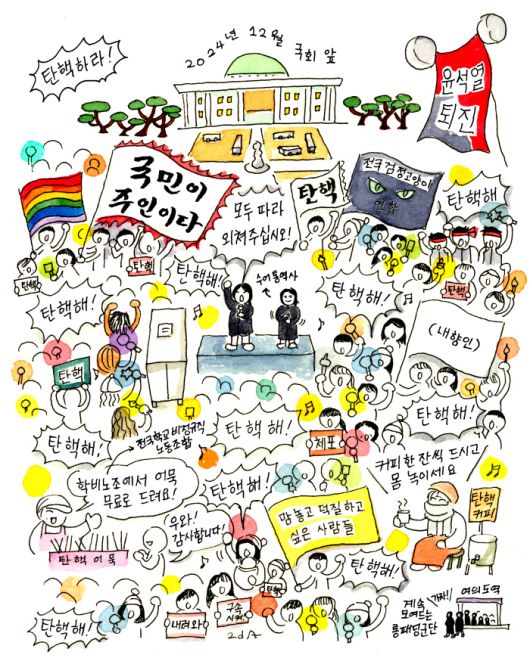 2024년 12월 국회 앞
탄핵하라!
윤석열
퇴진
국민이
주인이다
탄핵
전국 검정고양이
연합
탄핵해
모두 따라
외쳐주십시오!
탄핵
탄핵
탄핵해!
수어통역사
탄핵해!
탄핵
탄핵해!
(내향인)
탄핵
전국학교비정규직
노동조합
탄핵해!
탄핵해!
탄핵해!
체포
학비노조에서 어묵
무료로 드려요!
탄핵해!
커피 한 잔씩 드시고
몸 녹이세요
우와!
감사합니다!
맘 놓고 덕질하고
싶은 사람들
탄핵
커피
탄핵 어묵
탄핵해!
탄핵
탄핵해!
내려와
구속
시켜
계속
모여드는
응원봉군단
여의도역